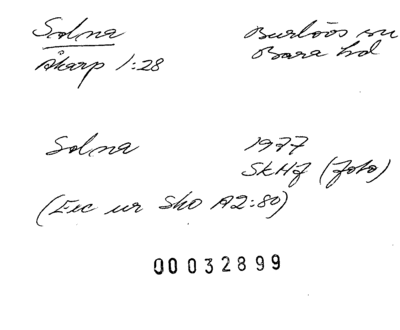 Solna
Åkarp 1:28
Burlövs sn
Bara hd
Solna
1977
SkHf (foto)
(Exc ur Sko A2:80)
00032899